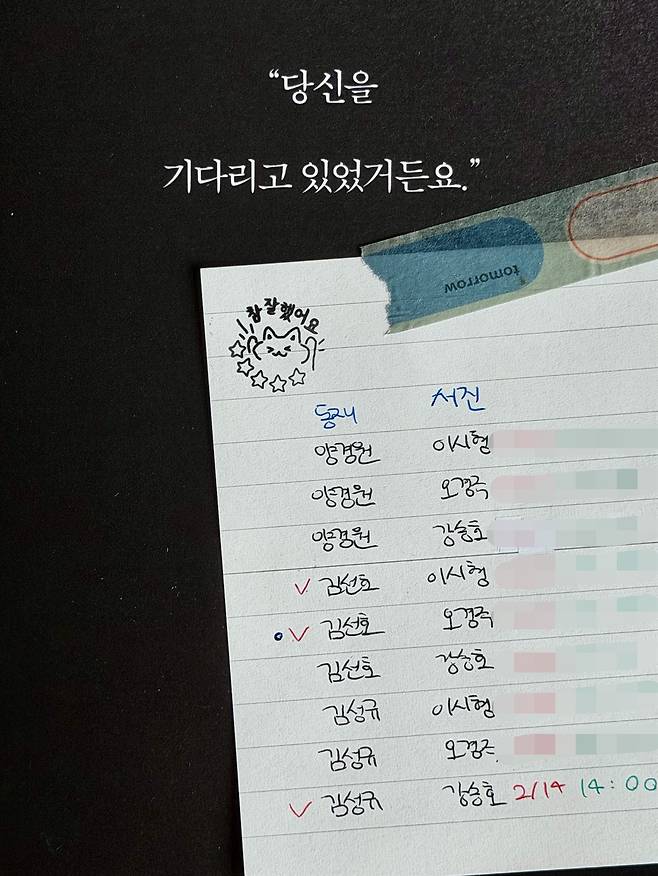 “당신을
기다리고 있었거든요.”
tomorrow
참 잘했어요
동재 서진
양경원 이시형
양경원 오경주
양경원 강승호
김선호 이시형
김선호 오경주
김선호 강승호
김성규 이시형
김성규 오경주
김성규 강승호 2/14 14:00